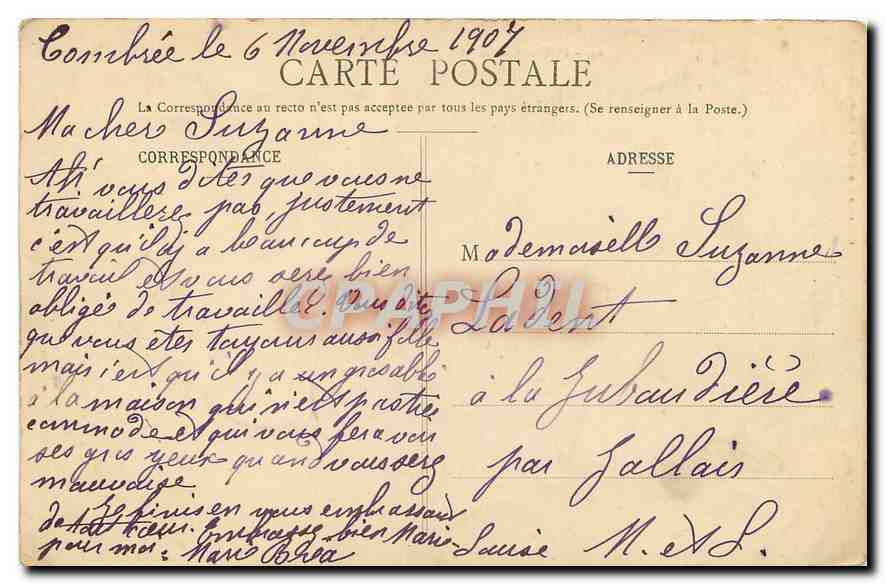 Combrée le 6 Novembre 1907
CARTE POSTALE
La Correspondance au recto n'est pas acceptee par tous les pays étrangers. (Se renseigner à la Poste.)
Ma cher Suzanne
CORRESPONDANCE
Ah vous dites que vous ne
travaillere pas, justement
c'est qu'il dj a beaucoup de
travail et vous sere bien
obligé de travailler. Vous dite
que vous etes toujours aussi folle
mais c'est qu'il y a un gros
à la maison qui n'est pas tres
commode et qui vous fera voir
ses gros yeux quand vous sere
mauvaise
Je finis en vous embrassant
de tout cœur. Embrasse bien Marie-
Louise
pour moi. Marie
ADRESSE
Mademoiselle Suzanne
Ladent
à la Jubaudière
par Jallais
M. et L.
CPAPHIL